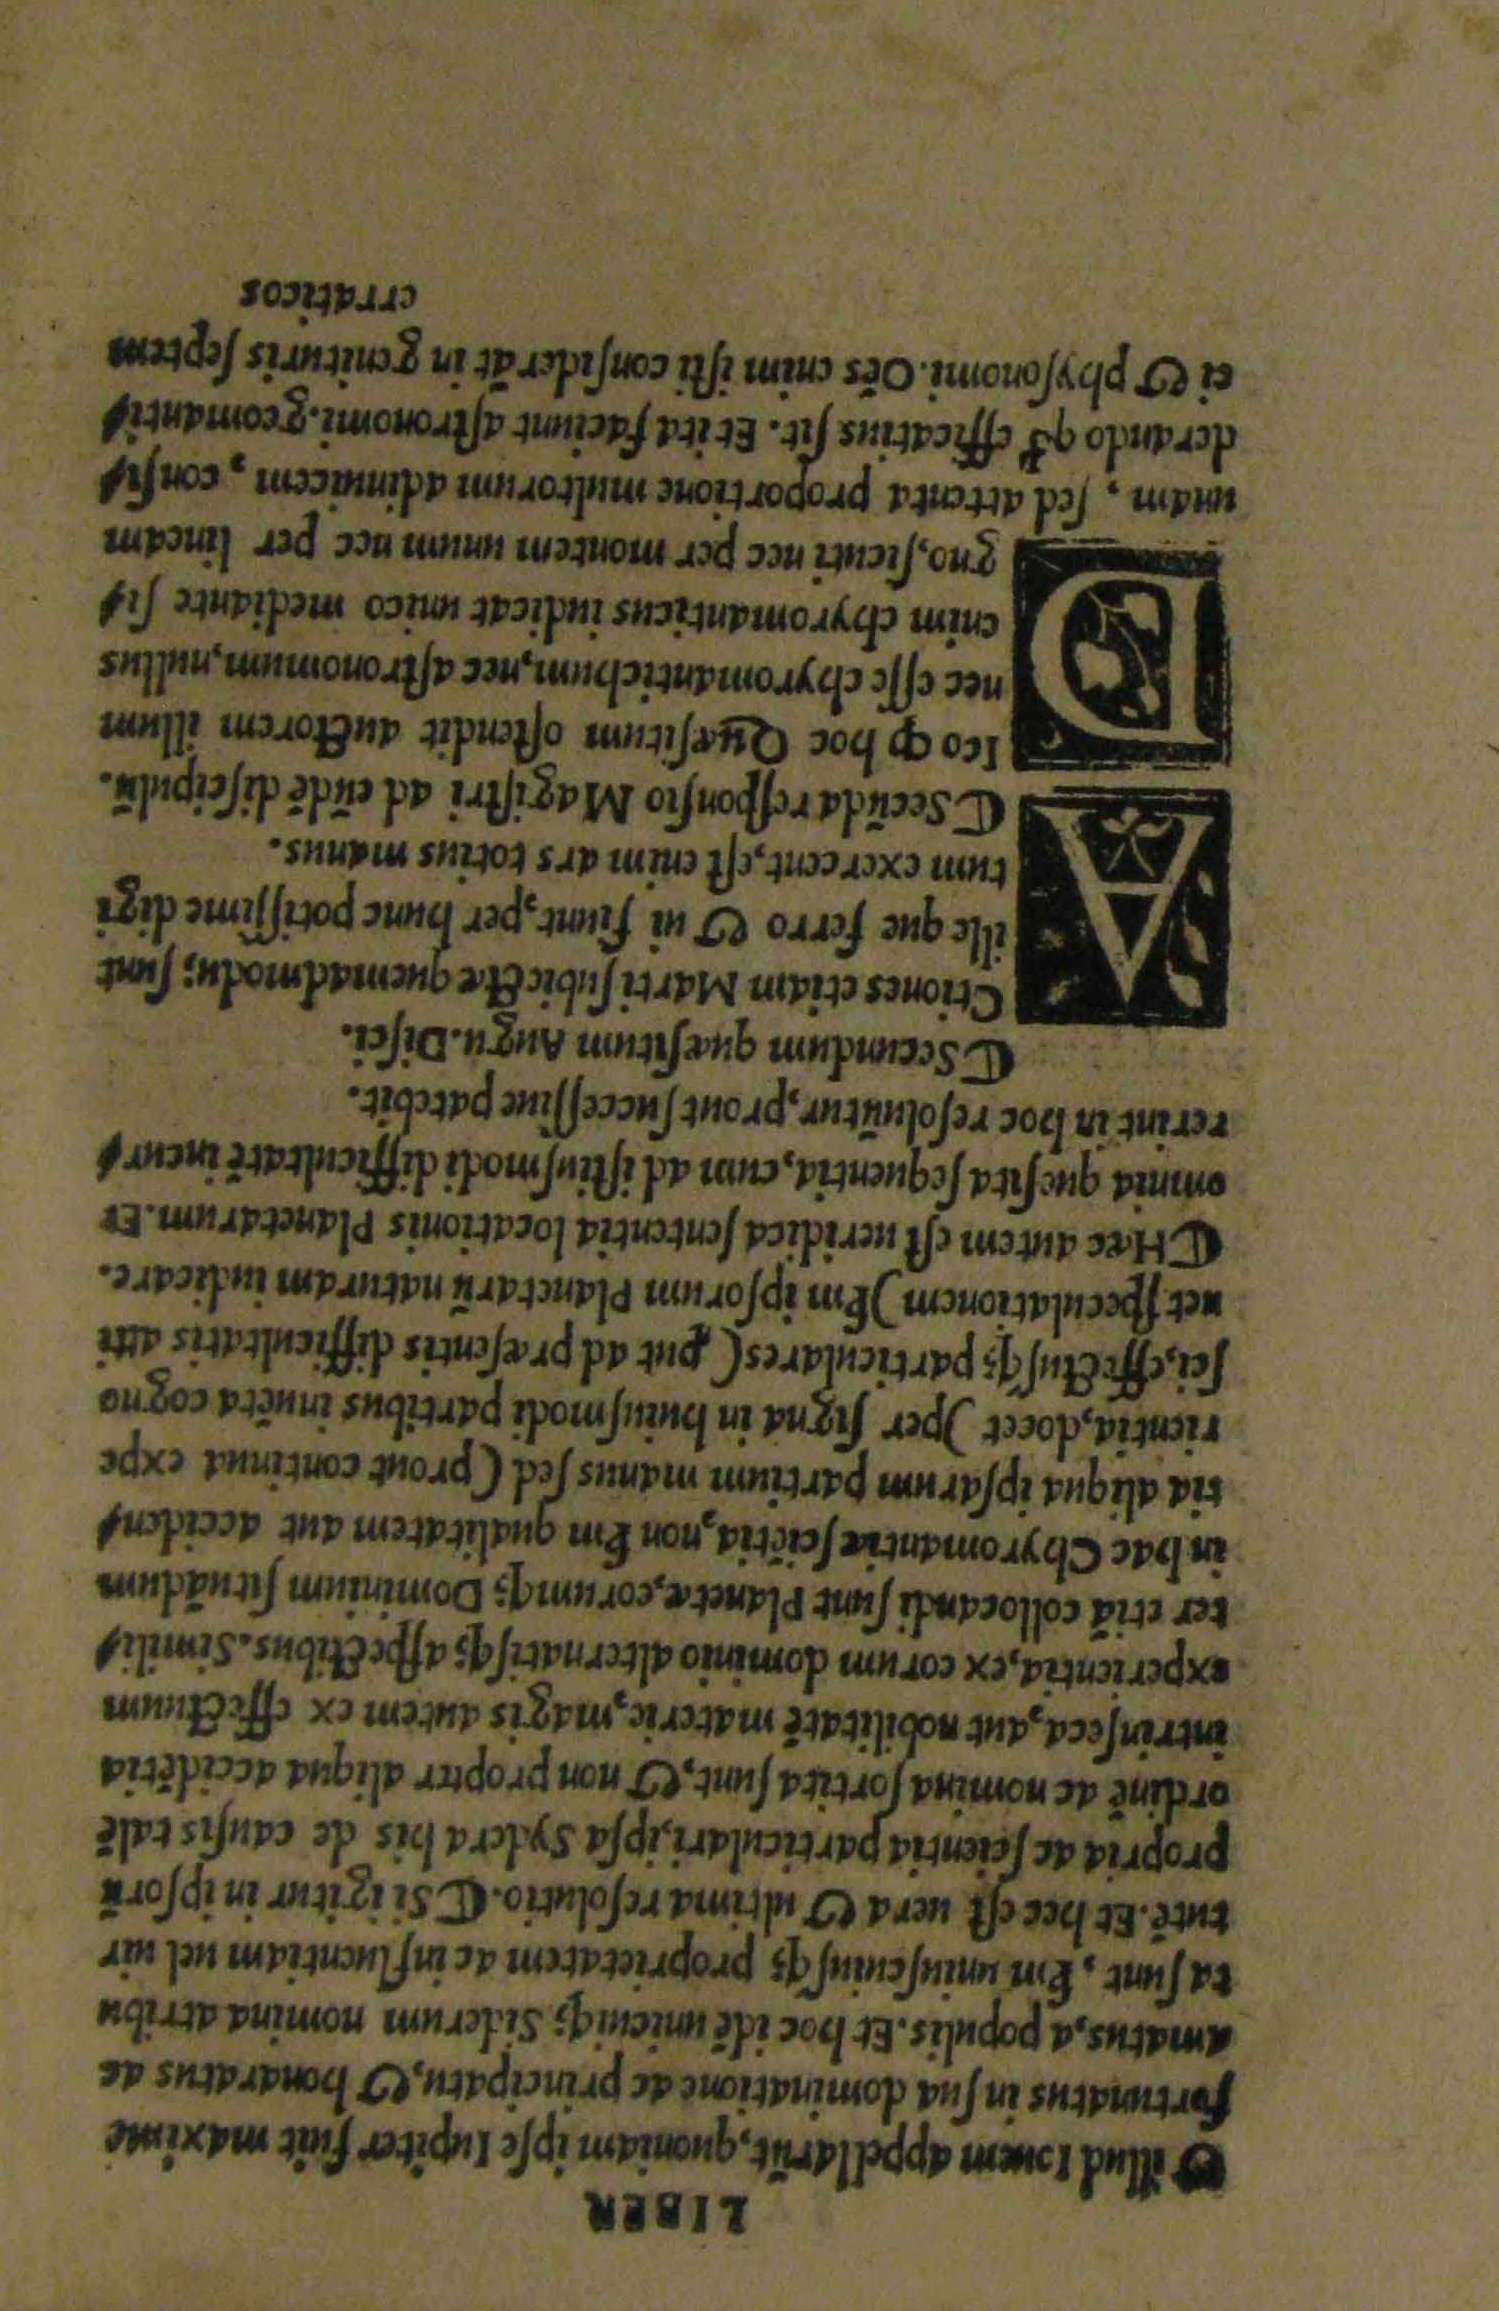 LIBER
& illud Iouem appellarūt, quoniam ipse Iupiter fuit maxime
fortunatus in sua dominatione ac principatu, & honoratus ac
amatus, a populis. Et hoc idē unicuiq; Siderum nomina attribu
ta sunt, scd̄m uniuscuiusq; proprietatem ac influentiam uel uir
tutē. Et hec est uera & ultima resolutio. ¶ Si igitur in ipsorū
propria ac scientia particulari, ipsa Sydera his de causis talē
ordinē ac nomina sortita sunt, & non propter aliqua accidētia
intrinseca, aut nobilitatē materie, magis autem ex effectuum
experientia, ex eorum dominio alternatisq; aspectibus. Simili-
ter etiā collocandi sunt Planetæ, eorumq; Dominium situādum
in hac Chyromantiæ sciētia, non scd̄m qualitatem aut acciden-
tia aliqua ipsarum partium manus sed (prout continua expe
rientia, docet) per signa in huiusmodi partibus inuēta cogno
sci, effectusq; particulares (put ad præsentis difficultatis atti
net speculationem) scd̄m ipsorum Planetarū naturam iudicare.
¶ Hæc autem est ueridica sententia locationis Planetarum. Et
omnia quesita sequentia, cum ad istiusmodi difficultatē incur-
rerint in hoc resoluūtur, prout successiue patebit.
¶ Secundum quæsitum Augu. Disci.
ACtiones etiam Marti subiectæ quemadmodū; sunt
ille que ferro & ui fiunt, per hunc potissime digi
tum exercent, est enim ars totius manus.
¶ Secūda responsio Magistri ad eūdē discipulū.
DIco ꝙ hoc Quæsitum ostendit auctorem illum
nec esse chyromantichum, nec astronomum, nullus
enim chyromanticus iudicat unico mediante si-
gno, sicuti nec per montem unum nec per lineam
unam, sed attenta proportione multorum adinuicem, consi-
derando qd̄ efficatius sit. Et ita faciunt astronomi. geomanti-
ci & physonomi. Oēs enim isti considerāt in genituris septem
erraticos